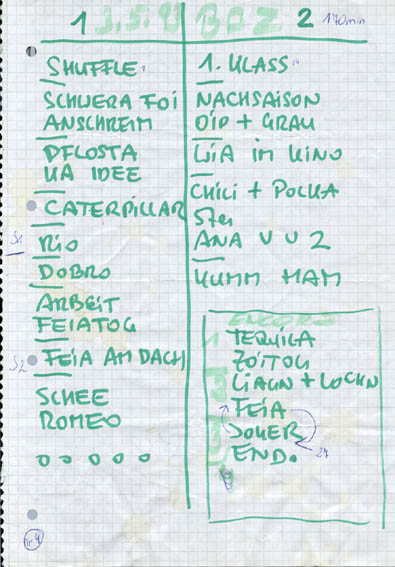 1
2
170min
SHUFFLE
SCHWERA FOI
ANSCHREIM
PFLOSTA
KA IDEE
CATERPILLAR
S1
RiO
DOBRO
ARBEIT
FEIATOG
S2
FEIA AM DACH
SCHEE
ROMEO
1. KLASS
NACHSAISON
OiD + GRAU
WiA im KiNO
CHiLi + POLKA
ANA V U 2
KUMM HAM
ENCORE
TEQUiLA
ZOiTOG
LiACHN + LOCKN
FEiA
JOKER
END.